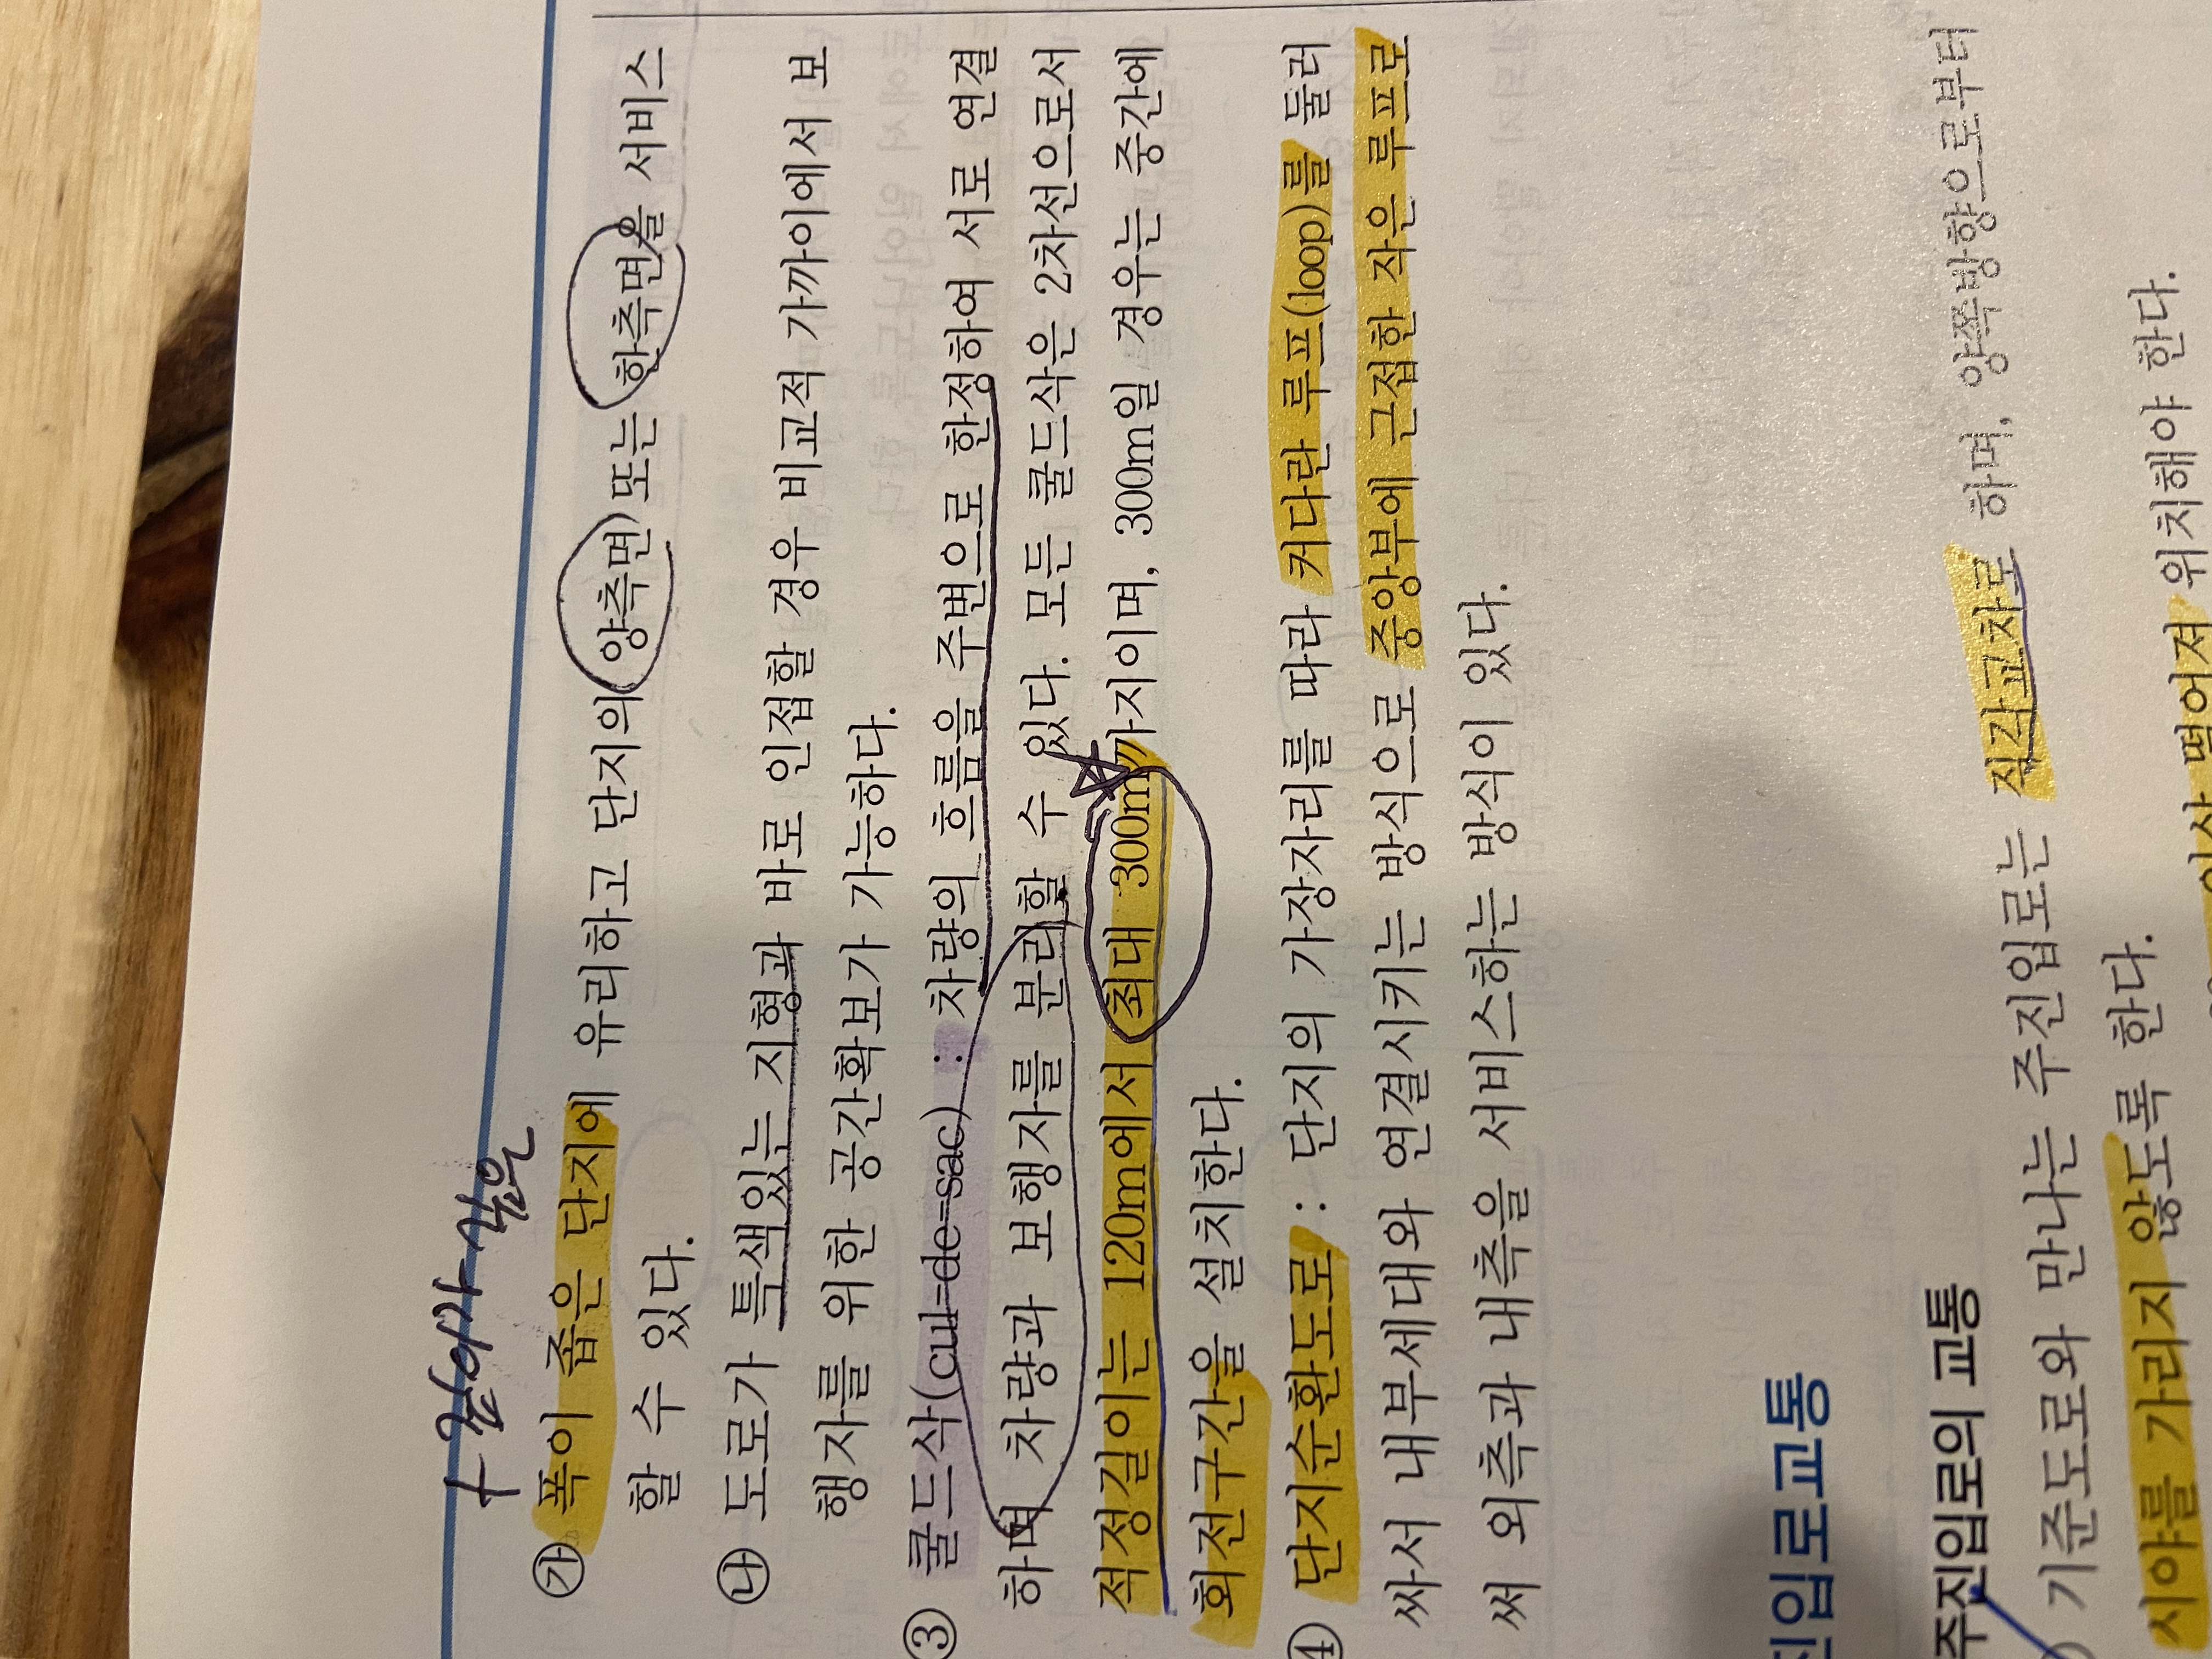 + 길이가
㉮ 폭이 좁은 단지에 유리하고 단지의 양측면 또는 한측면을 서비스
할 수 있다.
㉯ 도로가 특색있는 지형과 바로 인접할 경우 비교적 가까이에서 보
행자를 위한 공간확보가 가능하다.
③ 쿨드삭(cul-de-sac) : 차량의 흐름을 주변으로 한정하여 서로 연결
하며 차량과 보행자를 분리할 수 있다. 모든 쿨드삭은 2차선으로서
적정길이는 120m에서 최대 300m까지이며, 300m일 경우는 중간에
회전구간을 설치한다.
④ 단지순환도로 : 단지의 가장자리를 따라 커다란 루프(loop)를 둘러
싸서 내부세대와 연결시키는 방식으로 중앙부에 근접한 작은 루프로
써 외측과 내측을 서비스하는 방식이 있다.
진입로교통
주진입로의 교통
기준도로와 만나는 주진입로는 직각교차로 하며, 양쪽방향으로부터
시야를 가리지 않도록 한다.
이상 떨어져 위치해야 한다.